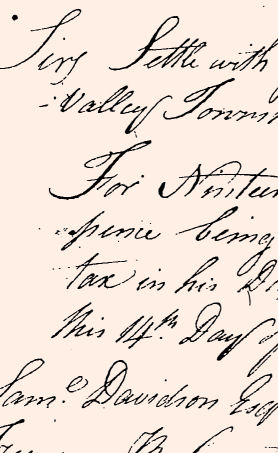 Sir Settle with
Valley Towns
For Nineteen
pence being
tax in his Di
this 14th Day of
Saml Davidson Esq